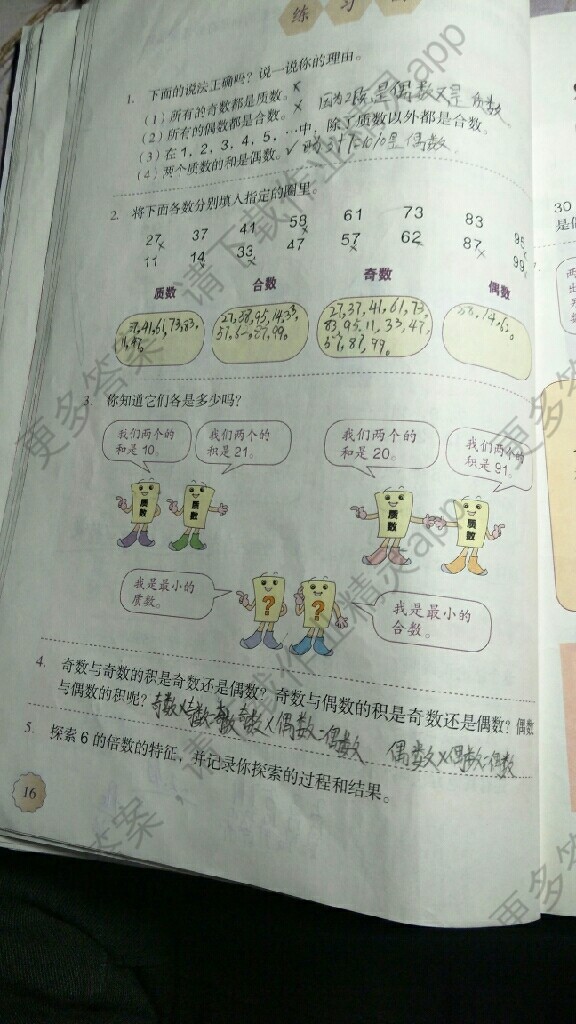 练习
1. 下面的说法正确吗？说一说你的理由。
（1）所有的奇数都是质数。×
（2）所有的偶数都是合数。× 因为2既是偶数又是质数
（3）在1，2，3，4，5，…中，除了质数以外都是合数。
（4）两个质数的和是偶数。✓
2. 将下面各数分别填入指定的圈里。
27 37 41 58 61 73 83 95
11 14 33 47 57 62 87 99
质数 合数 奇数 偶数
37,41,61,73,83,
11,47。
27,58,95,14,33,
57,62,87,99。
27,37,41,61,73,
83,95,11,33,47,
57,87,99。
58,14,62。
3. 你知道它们各是多少吗？
我们两个的
和是10。
我们两个的
积是21。
我们两个的
和是20。
我们两个的
积是91。
质数 质数 质数 质数
我是最小的
质数。
? ?
我是最小的
合数。
4. 奇数与奇数的积是奇数还是偶数？奇数与偶数的积是奇数还是偶数？偶数
与偶数的积呢？奇数×奇数=奇数 奇数×偶数=偶数 偶数×偶数=偶数
5. 探索6的倍数的特征，并记录你探索的过程和结果。
16
30
更多答案，请下载作业精灵app